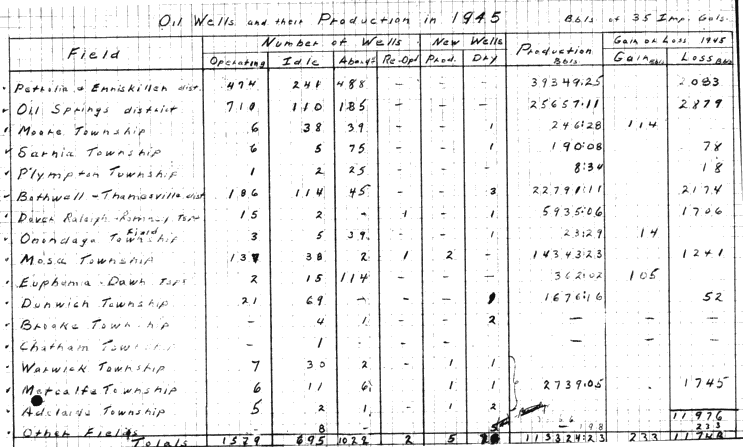 Oil Wells and their Production in 1945 Bbls of 35 Imp. Gals.
Field Number of Wells New Wells Production Bbls Gain or Loss 1945
Operating Idle Aband Re-Opd Prod. Dry Gain Bbls Loss Bbls
Petrolia & Enniskillen dist. 474 241 488 - - - 39349:25 2083
Oil Springs district 710 110 185 - - - 25657:11 2879
Moore Township 6 38 39 - - 1 246:28 114
Sarnia Township 6 5 75 - - 1 190:08 78
Plympton Township 1 2 25 - - 8:34 18
Bothwell-Thamesville dist 186 114 45 - - 3 22791:11 2174
Dover Raleigh-Romney Tsps 15 2 - 1 - 1 5935:06 1706
Onondaga Township Field 3 5 39 - - 1 23:29 14
Mosa Township 137 38 2 1 2 - 14343:23 1241
Euphemia-Dawn Tsps 2 15 114 - - - 362:02 105
Dunwich Township 21 69 - - - 1676:16 52
Brooke Township - 4 1 - - 2 - - -
Chatham Township - 1 - - - - - -
Warwick Township 7 30 2 - 1 1
Metcalfe Township 6 11 6 - 1 1 2739:05 1745
Adelaide Township 5 2 1 - 1 2 11976
Other Fields - 8 - - - 198 233
Totals 1579 695 1022 2 5 113324:23 233 11748